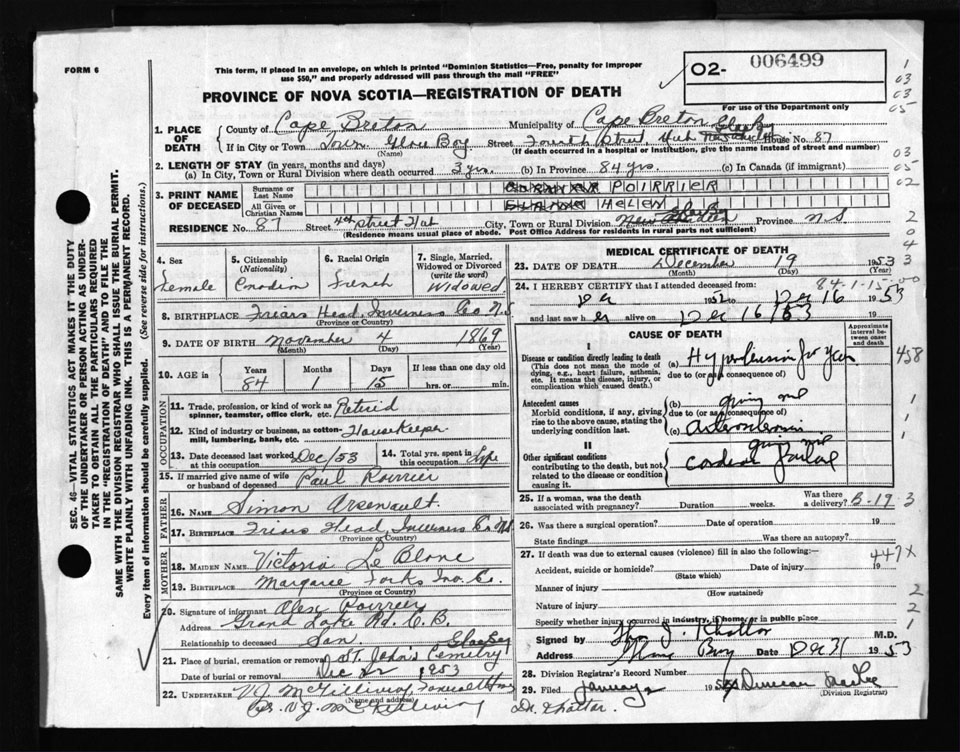 FORM 6
This form, if placed in an envelope, on which is printed "Dominion Statistics—Free, penalty for improper
use $50," and properly addressed will pass through the mail "FREE"
02- 006499
For use of the Department only
PROVINCE OF NOVA SCOTIA—REGISTRATION OF DEATH
1. PLACE OF DEATH
County of Cape Breton Municipality of Cape Breton
If in City or Town Town Glace Bay Street Fourth Street Hub House No. 87
(Name) (If death occurred in a hospital or institution, give the name instead of street and number)
2. LENGTH OF STAY (in years, months and days)
(a) In City, Town or Rural Division where death occurred 3 yrs. (b) In Province 84 yrs. (c) In Canada (if immigrant)
3. PRINT NAME OF DECEASED
Surname or Last Name POIRRIER
All Given or Christian Names HELEN
RESIDENCE No. 87 Street 4th Street Hub City, Town or Rural Division Province N.S.
(Residence means usual place of abode. Post Office Address for residents in rural parts not sufficient)
4. Sex Female
5. Citizenship (Nationality) Canadian
6. Racial Origin French
7. Single, Married, Widowed or Divorced (write the word) Widowed
8. BIRTHPLACE Friars Head, Inverness Co N.S.
(Province or Country)
9. DATE OF BIRTH November 4 1869
(Month) (Day) (Year)
10. AGE in Years 84 Months 1 Days 15 If less than one day old hrs. or min.
OCCUPATION
11. Trade, profession, or kind of work as spinner, teamster, office clerk, etc. Retired
12. Kind of industry or business, as cotton-mill, lumbering, bank, etc. House Keeper
13. Date deceased last worked at this occupation Dec/53
14. Total yrs. spent in this occupation Life
15. If married give name of wife or husband of deceased Paul Poirrier
FATHER
16. NAME Simon Arsenault
17. BIRTHPLACE Friars Head, Inverness Co N.S.
(Province or Country)
MOTHER
18. MAIDEN NAME Victoria Le Blanc
19. BIRTHPLACE Margaree Forks Inv. Co.
(Province or Country)
20. Signature of informant Alex Poirrier
Address Grand Lake Rd. C.B.
Relationship to deceased Son
21. Place of burial, cremation or removal St. John's Cemetry
Date of burial or removal Dec 22 1953
22. UNDERTAKER V.J. McGillivray Funeral Home
(Name and address)
Per. V.J. McGillivray
MEDICAL CERTIFICATE OF DEATH
23. DATE OF DEATH December 19 1953
(Month) (Day) (Year)
84-1-15-00
24. I HEREBY CERTIFY that I attended deceased from:
1952 to Dec 16 1953
and last saw her alive on Dec 16/53
CAUSE OF DEATH
Approximate interval between onset and death
I
Disease or condition directly leading to death
(This does not mean the mode of dying, e.g., heart failure, asthenia, etc. It means the disease, injury, or complication which caused death.)
(a) Hypertension for years
due to (or as consequence of)
Antecedent causes
Morbid conditions, if any, giving rise to the above cause, stating the underlying condition last.
(b) giving me
due to (or as consequence of)
(c)
II
Other significant conditions
contributing to the death, but not related to the disease or condition causing it.
25. If a woman, was the death associated with pregnancy? Duration weeks. Was there a delivery?
B-19-3
26. Was there a surgical operation? Date of operation 19
State findings Was there an autopsy?
27. If death was due to external causes (violence) fill in also the following:—
447X
Accident, suicide or homicide? Date of injury 19
(State which)
Manner of injury
(How sustained)
Nature of injury
Specify whether injury occurred in industry, in home, or in public place
Signed by M.D.
Address Glace Bay Date Dec 31 1953
28. Division Registrar's Record Number
29. Filed January 19
(Division Registrar)
SEC. 46—VITAL STATISTICS ACT MAKES IT THE DUTY
OF THE UNDERTAKER OR PERSON ACTING AS UNDER-
TAKER TO OBTAIN ALL THE PARTICULARS REQUIRED
IN THE "REGISTRATION OF DEATH" AND TO FILE THE
SAME WITH THE DIVISION REGISTRAR WHO SHALL ISSUE THE BURIAL PERMIT.
WRITE PLAINLY WITH UNFADING INK. THIS IS A PERMANENT RECORD.
Every item of information should be carefully supplied. (See reverse side for instructions.)